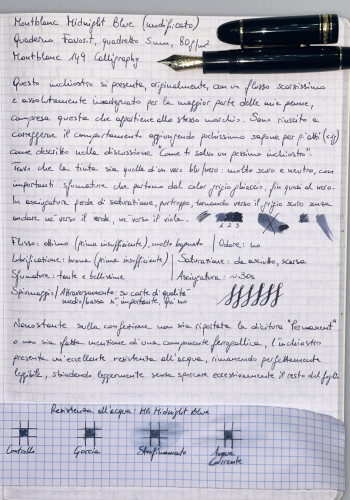 Montblanc Midnight Blue (modificato)
Quaderno Favorit, quadretto 5mm, 80g/m²
Montblanc 149 Calligraphy
Questo inchiostro si presenta, originalmente, con un flusso scarsissimo
e assolutamente inadeguato per la maggior parte delle mie penne,
compresa questa che appartiene allo stesso marchio. Sono riuscito a
correggerne il comportamento aggiungendo pochissimo sapone per piatti
come descritto nella discussione "Come ti salvo un pessimo inchiostro".
Trovo che la tinta sia quella di un vero blu/nero: molto scuro e neutro, con
importanti sfumature che partono dal color grigio ghiaccio, fin quasi al nero.
In asciugatura perde di saturazione, purtroppo, tornando verso il grigio scuro senza
andare nè verso il verde, nè verso il viola.
1 2 3
Flusso: ottimo (prima insufficiente), molto bagnato | Odore: no
Lubrificazione: buona (prima insufficiente) | Saturazione: da asciutto, scarsa
Sfumature: tante e bellissime | Asciugatura: ~30s
Spiumaggio/Attraversamento: su carte di qualità
medio/bassa sì, importante, qui no
Nonostante sulla confezione non sia riportata la dicitura "Permanent"
o non sia fatta menzione di una componente ferrogallica, l'inchiostro
presenta un'eccellente resistenza all'acqua, rimanendo perfettamente
leggibile, sbiadendo leggermente senza sporcare eccessivamente il resto del foglio.
Resistenza all'acqua: MB Midnight Blue
Controllo Goccia Strofinamento Acqua
Corrente